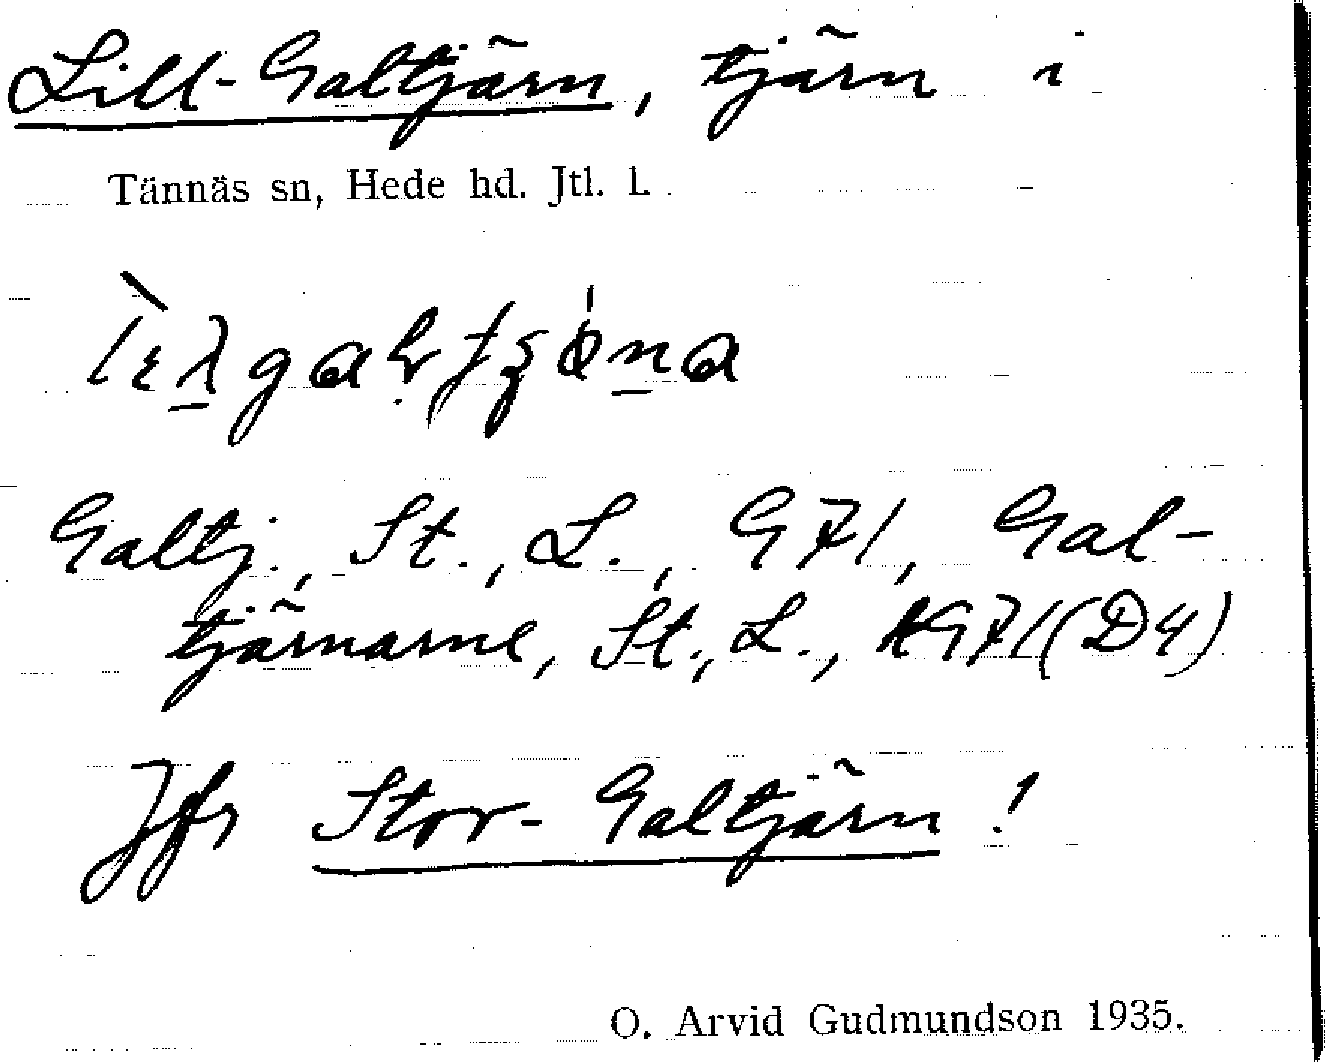 Lill-Galtjärn, tjärn i
Tännäs sn, Hede hd. Jtl. l.
Galtj., St., L., G71, Gal-
tjärnarne, St., L., KG71 (D4)
Jfr Stor-Galtjärn!
O. Arvid Gudmundson 1935.